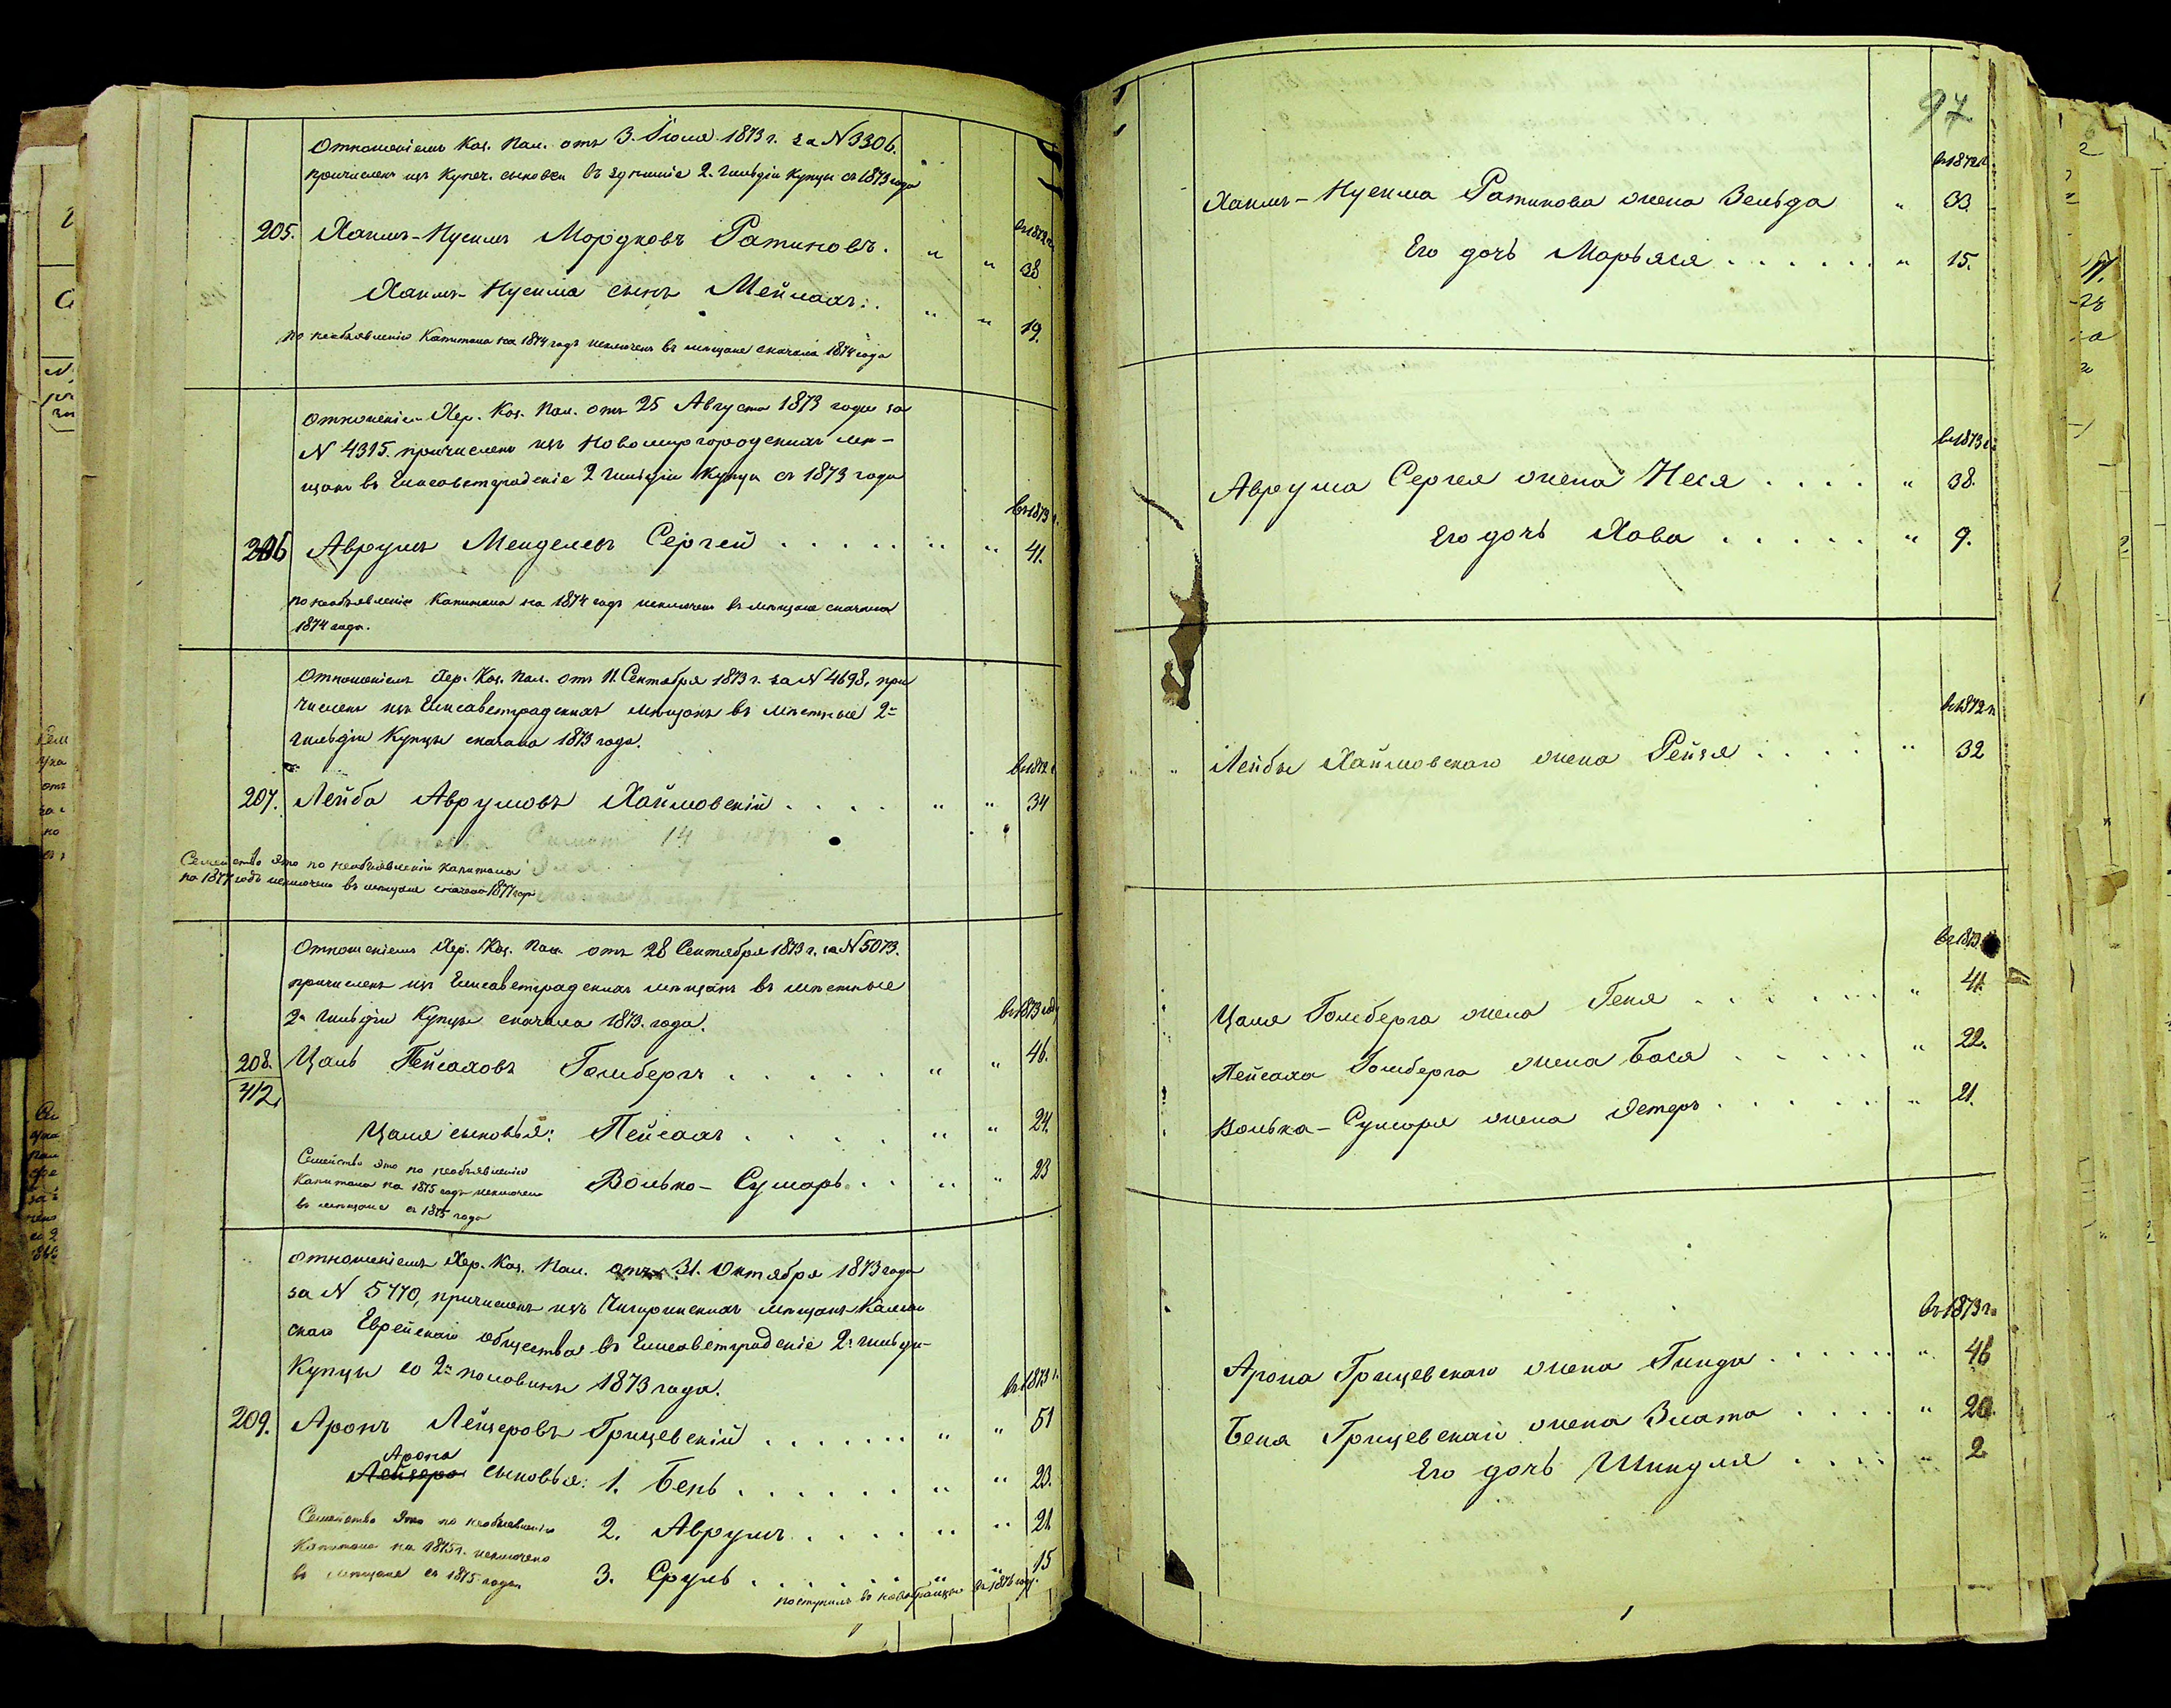 Отношеніемъ Каз. Пал. отъ 3. Іюля 1873 г. за N 3306.
причисленъ изъ Купеч. сыновей въ здѣшніе 2. гильдіи купцы съ 1873 года
въ 1872 г.
205. Хаимъ-Нусимъ Мордковъ Ратиновъ. " " 38.
Хаимъ-Нусима сынъ Мейлахъ. " " 19.
по необъявленію Капитала на 1874 годъ исключенъ въ мѣщане сначала 1874 года
Отношеніемъ Хер. Каз. Пал. отъ 25 Августа 1873 года за
N 4395. причисленъ изъ Новомиргородскихъ мѣ-
щанъ въ Елисаветградскіе 2 гильдіи Купцы съ 1873 года
въ 1873 г.
206 Аврумъ Менделевъ Сергей . . . . . " " 41.
по необъявленію Капитала на 1874 годъ исключенъ въ мѣщане сначала
1874 года.
Отношеніемъ Хер. Каз. Пал. отъ 11. Сентября 1873 г. за N 4698, при
численъ изъ Елисаветградскихъ мѣщанъ въ мѣстные 2й
гильдіи Купцы сначала 1873 года.
въ 1872 г.
207. Лейба Аврумовъ Хаймовскій . . . . " " 34
14
Семейство это по необъявленію капитала
на 1877 годъ исключено въ мѣщане сначала 1877 года
Отношеніемъ Хер. Каз. Пал. отъ 28 Сентября 1873 г. за N 5073.
причисленъ изъ Елисаветградскихъ мѣщанъ въ мѣстные
2й гильдіи Купцы сначала 1873. года.
въ 1873 году
208. Цаль Пейсаховъ Голмбергъ . . . . . " " 46.
412.
Цаля сыновья: Пейсахъ . . . . " " 24.
Семейство это по необъявленію
Капитала на 1875 годъ исключено
въ мѣщане съ 1875 года
Волько-Сумаръ . . " " 23
Отношеніемъ Хер. Каз. Пал. отъ 31. Октября 1873 года
за N 5770, причисленъ изъ Чигиринскихъ мѣщанъ
скаго Еврейскаго общества въ Елисаветградскіе 2й гильдіи
Купцы со 2й половины 1873 года.
въ 1873 г.
209. Аронъ Лейзеровъ Грицевскій . . . . . . . " " 51
Арона
Лейзера сыновья: 1. Бень . . . . . . " " 23.
2. Аврумъ . . . . " " 21.
3. Сруль . . . . . . " 15
Семейство это по необъявленію
Капитала на 1875 г. исключено
въ мѣщане съ 1875 года
поступилъ въ новобранцы въ 1876 году.
97
въ 1872 г.
Хаимъ-Нусима Ратинова жена Зельда " 33.
Его дочь Марьяся . . . . . . " 15.
въ 1873 г.
Аврума Сергея жена Неся . . . . " 38.
Его дочь Хава . . . . . " 9.
въ 1872 г.
Лейбы Хаймовскаго жена Рейзя . . . . " 32
въ 1873 г.
Цаля Голмберга жена Геня . . . . . . " 41.
Пейсаха Голмберга жена Бася . . . . " 22.
Волька-Сумаря жена Эстеръ . . . . . " 21.
въ 1873 г.
Арона Грицевскаго жена Гинда . . . . . . " 46
Беня Грицевскаго жена Злата . . . . " 20.
Его дочь Шиндля . . . . " 2